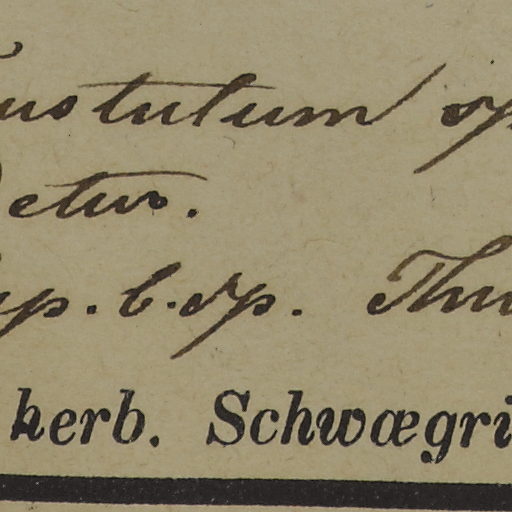 ustulum sp
etur.
p. b. sp. Thu
herb. Schwægri